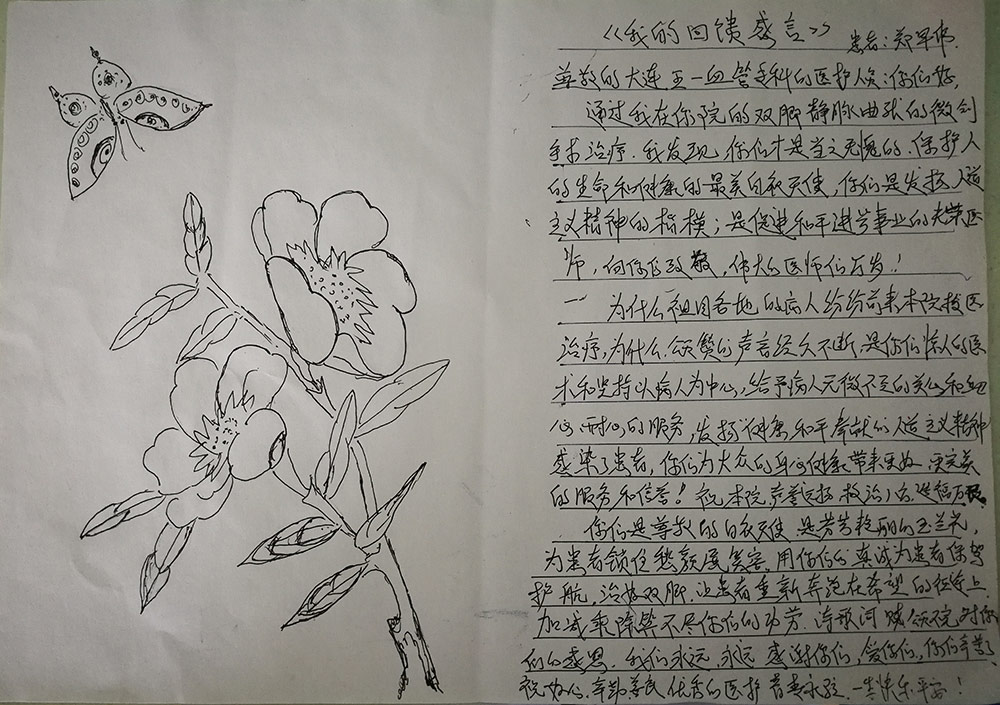 《我的回馈感言》 患者:郑早伟.
尊敬的大连五一血管专科的医护人员:你们好,
通过我在你院的双脚静脉曲张的微创
手术治疗.我发现,你们才是当之无愧的.保护人
的生命和健康的最美白衣天使,你们是发扬人道
主义精神的楷模;是促进和平进步事业的光荣医
师,向你们致敬,伟大的医师们万岁!
一 为什么祖国各地的病人纷纷前来本院接医
治疗,为什么.颂赞的声音经久不断.是你们惊人的医
术和坚持以病人为中心,给予病人无微不至的关心和细
心.耐心的服务,发扬健康和平奉献的人道主义精神
感染了患者,你们为大众的身心健康带来更好.更完美
的服务和信誉!祝本院声誉远扬 救治八方.造福万民
你们是尊敬的白衣天使 是芳芳艳丽的玉兰花,
为患者锁住愁颜展笑容.用你们的真诚为患者保驾
护航,治好双脚.让患者重新奔跑在希望的征途上
加减乘除算不尽你们的功劳.诗歌词赋颂不完对你
们的感恩.我们永远,永远感谢你们,爱你们,你们辛苦了
祝好心.辛勤 优秀的医护 一生快乐平安!